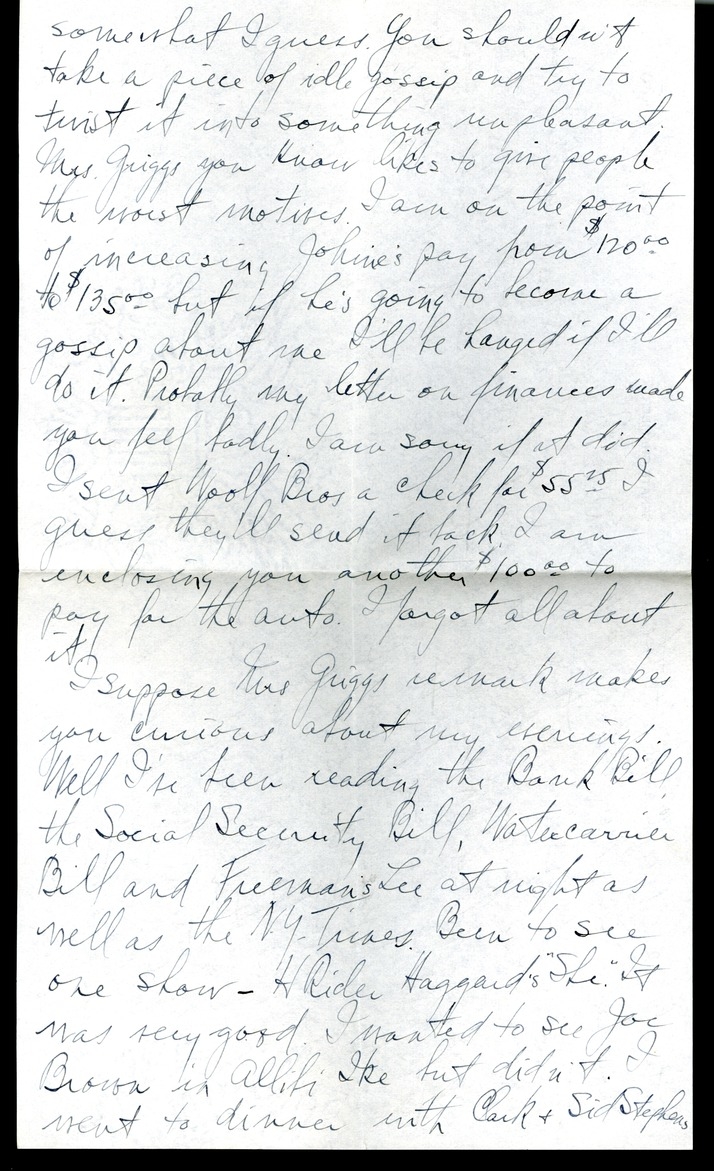 somewhat I guess. You shouldn't
take a piece of idle gossip and try to
twist it into something unpleasant.
Mrs. Griggs you know likes to give people
the worst motives. I am on the point
of increasing Johnie's pay from $120.00
to $135.00 but if he's going to become a
gossip about me I'll be hanged if I'll
do it. Probably my letter on finances made
you feel badly. I am sorry if it did.
I sent Woolf Bros a check for $55.75 I
guess they'll send it back. I am
enclosing you another $100.00 to
pay for the auto. I forgot all about
it!
I suppose Mrs Griggs remark makes
you curious about my evenings.
Well I've been reading the Bank Bill,
the Social Security Bill, Watercarrier
Bill and Freeman's Lee at night as
well as the N.Y. Times. Been to see
one show – H Rider Haggard's "She." It
was very good. I wanted to see Joe
Brown in Allibi Ike but didn't. I
went to dinner with Clark & Sid Stephens